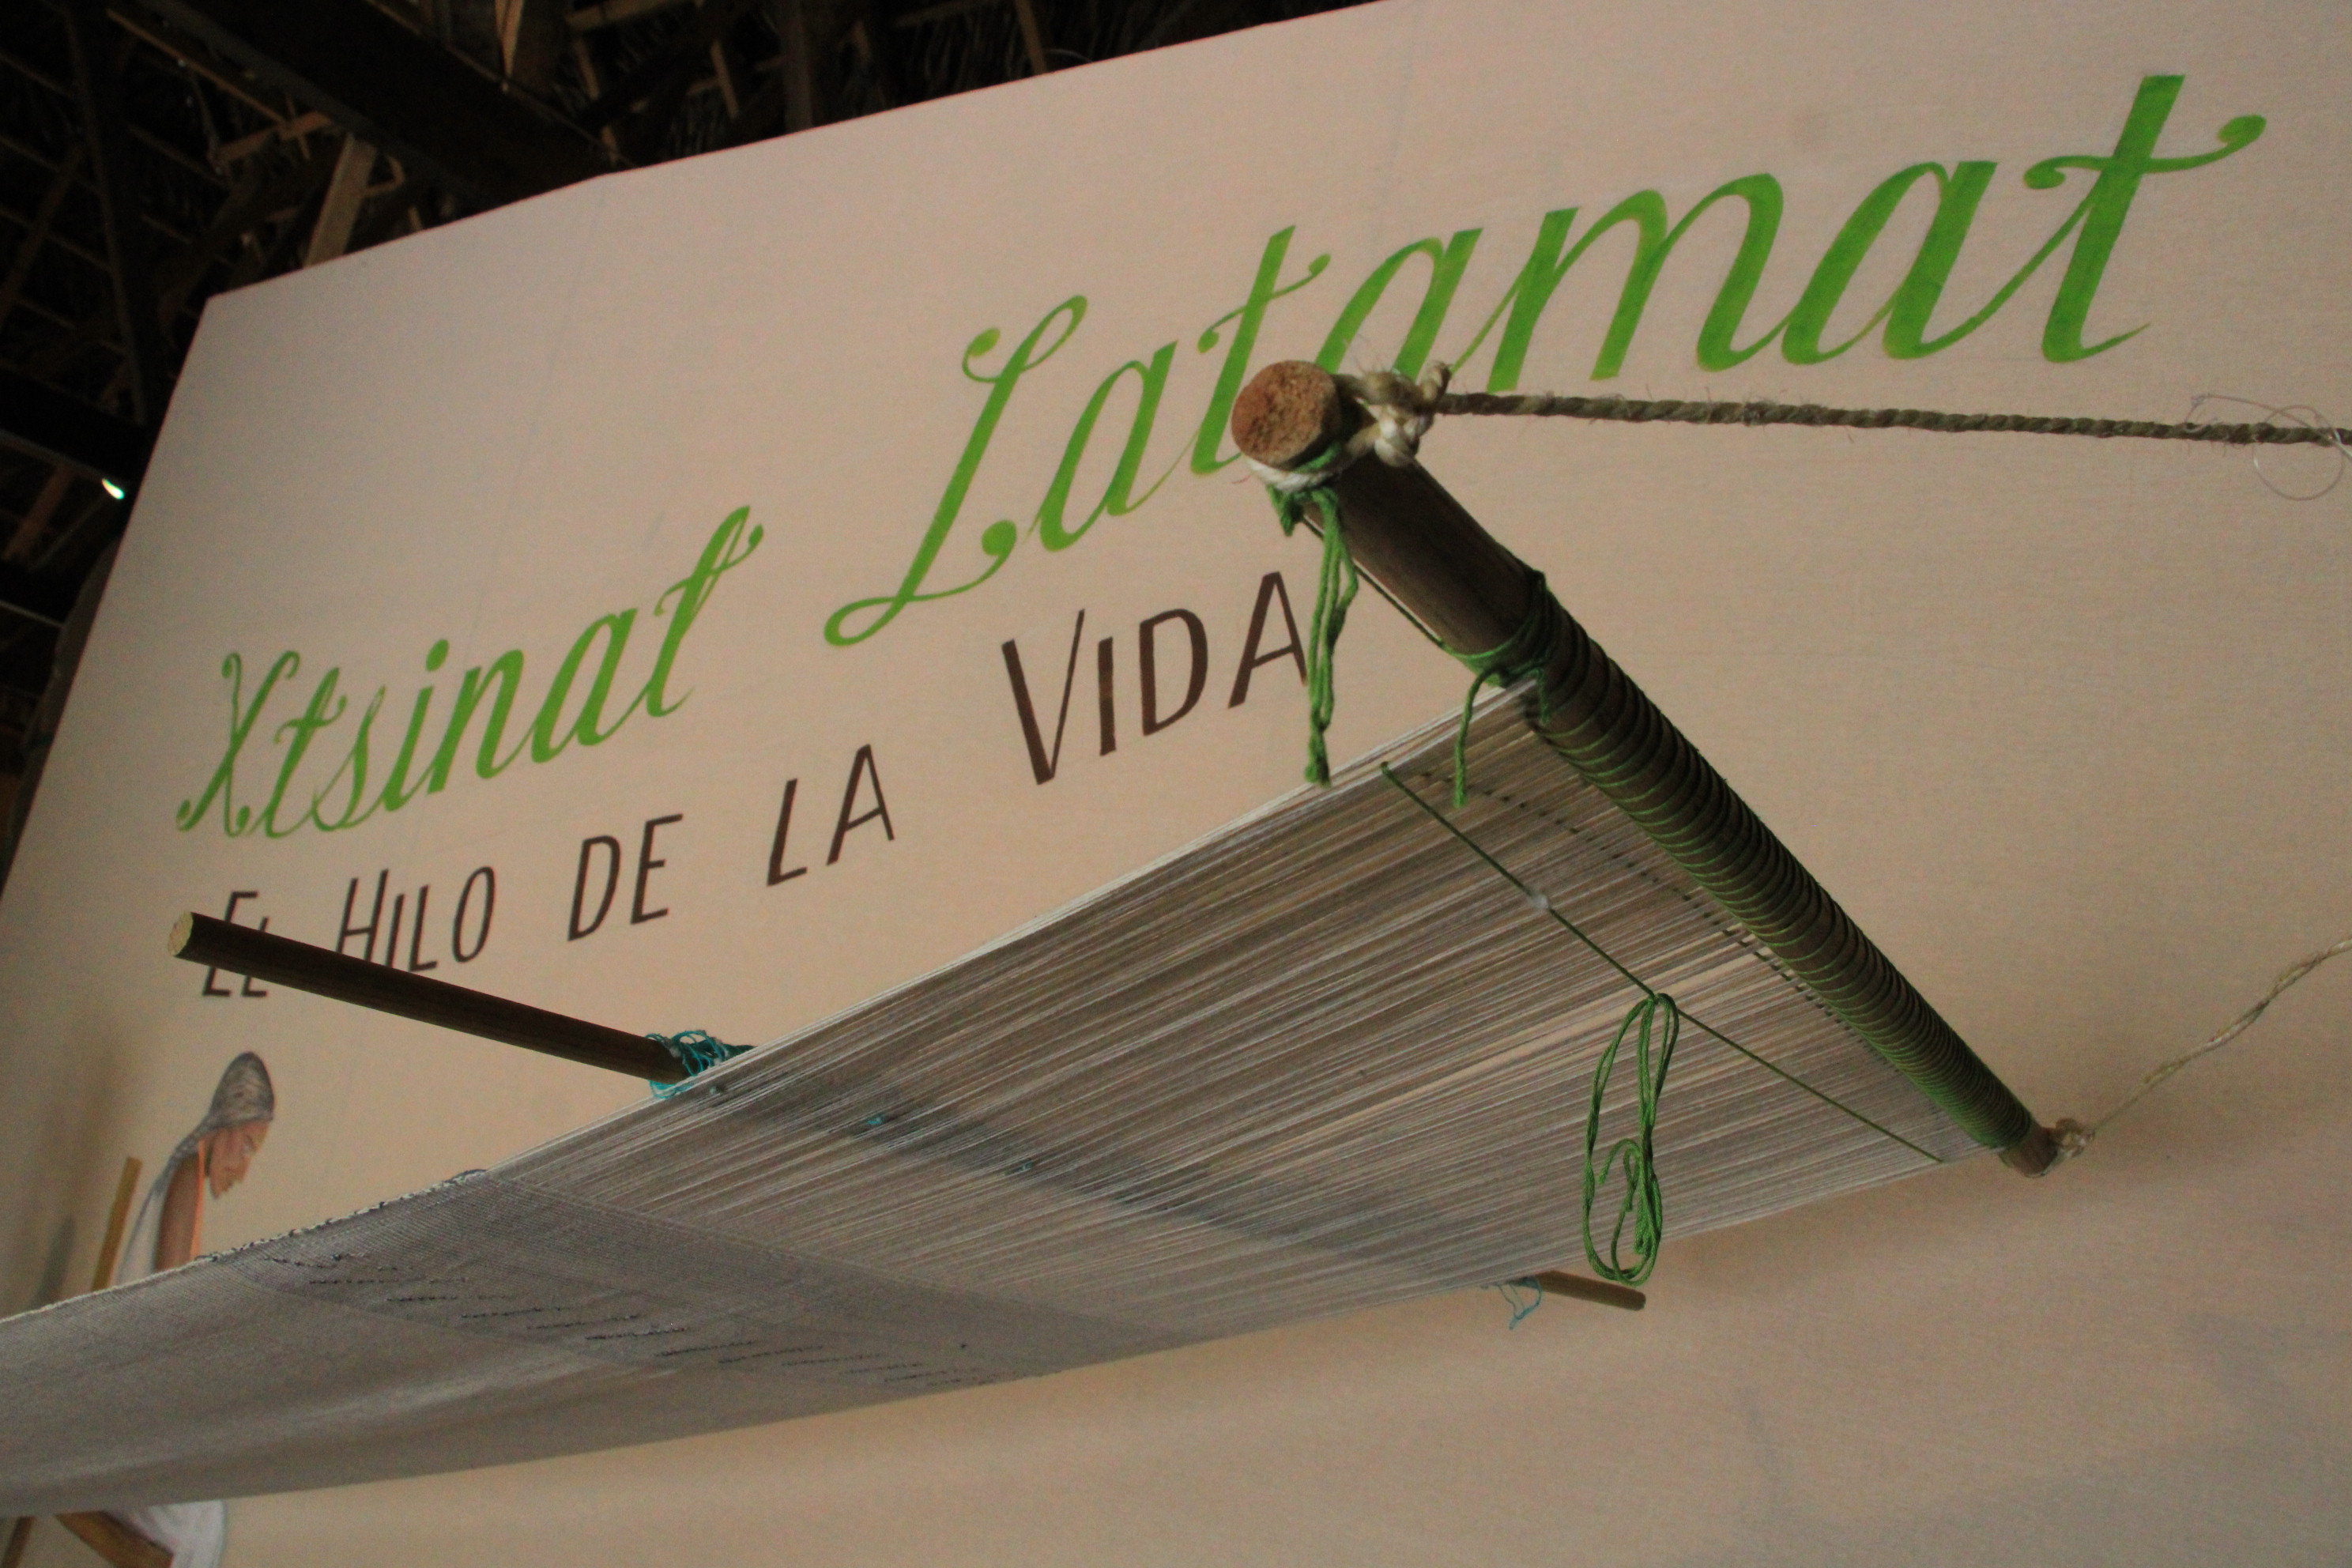 Xtsinat Latamat
EL HILO DE LA VIDA